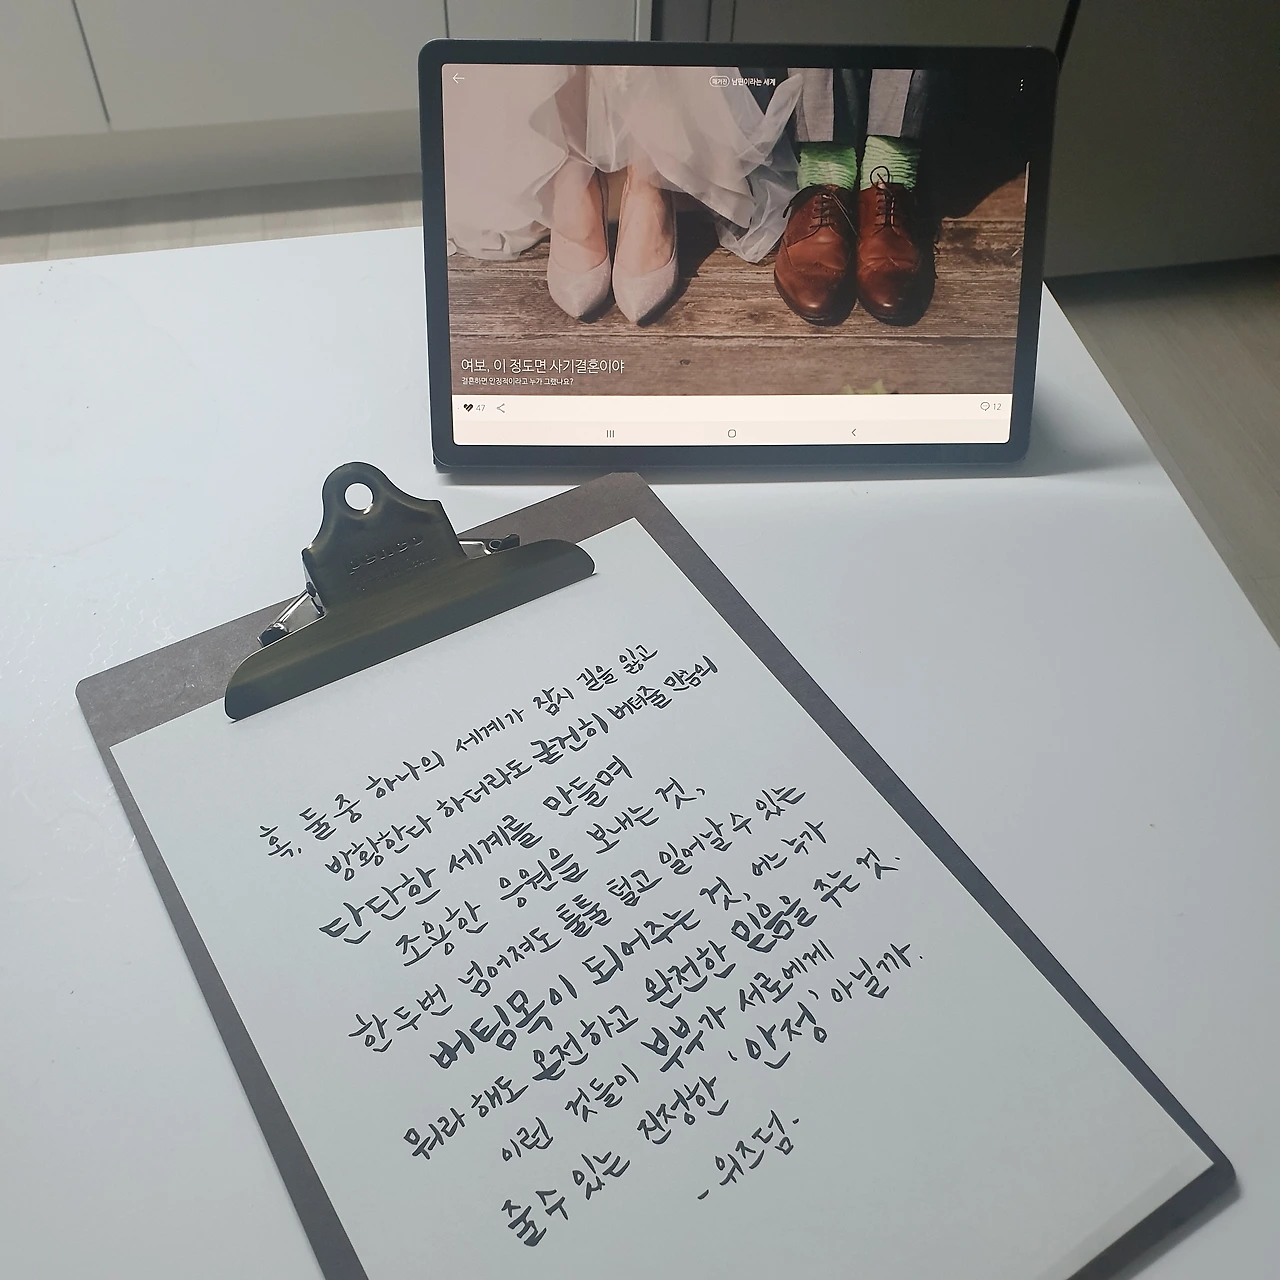 매거진 남편이라는 세계
여보, 이 정도면 사기결혼이야
결혼하면 안정적이라고 누가 그랬나요?
47
12
penco
혹, 둘 중 하나의 세계가 잠시 길을 잃고
방황한다 하더라도 굳건히 버텨줄 만큼의
단단한 세계를 만들며
조용한 응원을 보내는 것,
한두번 넘어져도 툴툴 털고 일어날 수 있는
버팀목이 되어주는 것, 어느 누가
뭐라 해도 온전하고 완전한 믿음을 주는 것.
이런 것들이 부부가 서로에게
줄 수 있는 진정한 '안정' 아닐까.
- 위즈덤.